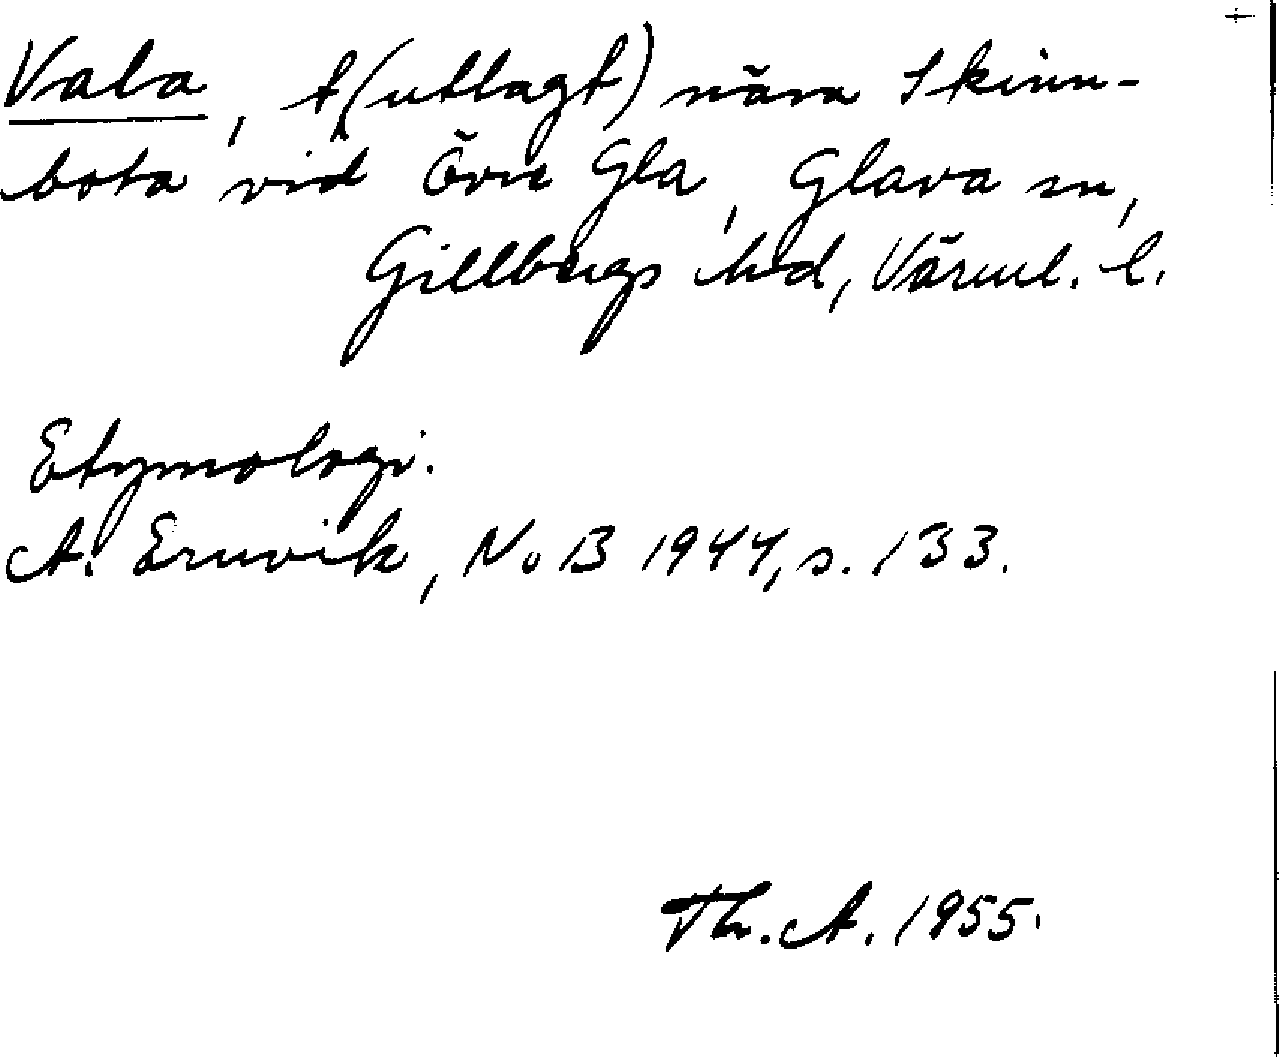 Vala, t (utlagt) nära Skinn-
bota vid Övre Gla, Glava sn,
Gillbergs hd, Värml. l.
Etymologi.
A. Ernvik, NoB 1944, s. 133.
Th. A. 1955.